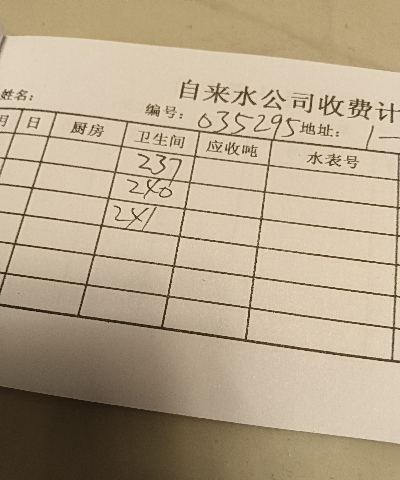 自来水公司收费计
姓名: 编号: 035295 地址: 1一
月 日 厨房 卫生间 应收吨 水表号
237
240
241